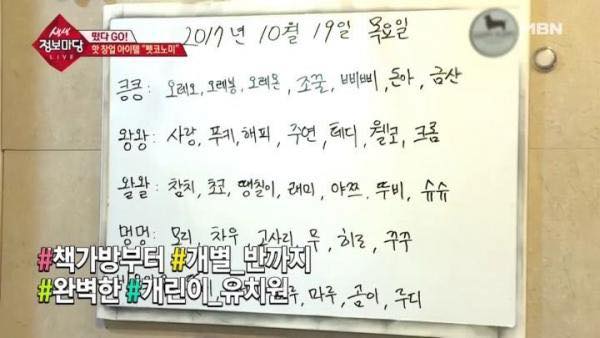 생생
정보마당
LIVE
떴다 GO!
핫 창업 아이템 "펫코노미"
MBN
2017년 10월 19일 목요일
킁킁: 오레오, 오레봉, 오레온, 조꿀, 삐삐삐, 돈아, 금산
왕왕: 사랑, 푸키, 해피, 주연, 테디, 웰코, 크롬
왈왈: 참치, 초코, 땡칠이, 래미, 야쯔, 뚜비, 슈슈
멍멍: 모리, 차우, 고사리, 무, 히로, 쭈쭈
마루, 곰이, 루디
#책가방부터 #개별_반까지
#완벽한 #개린이_유치원